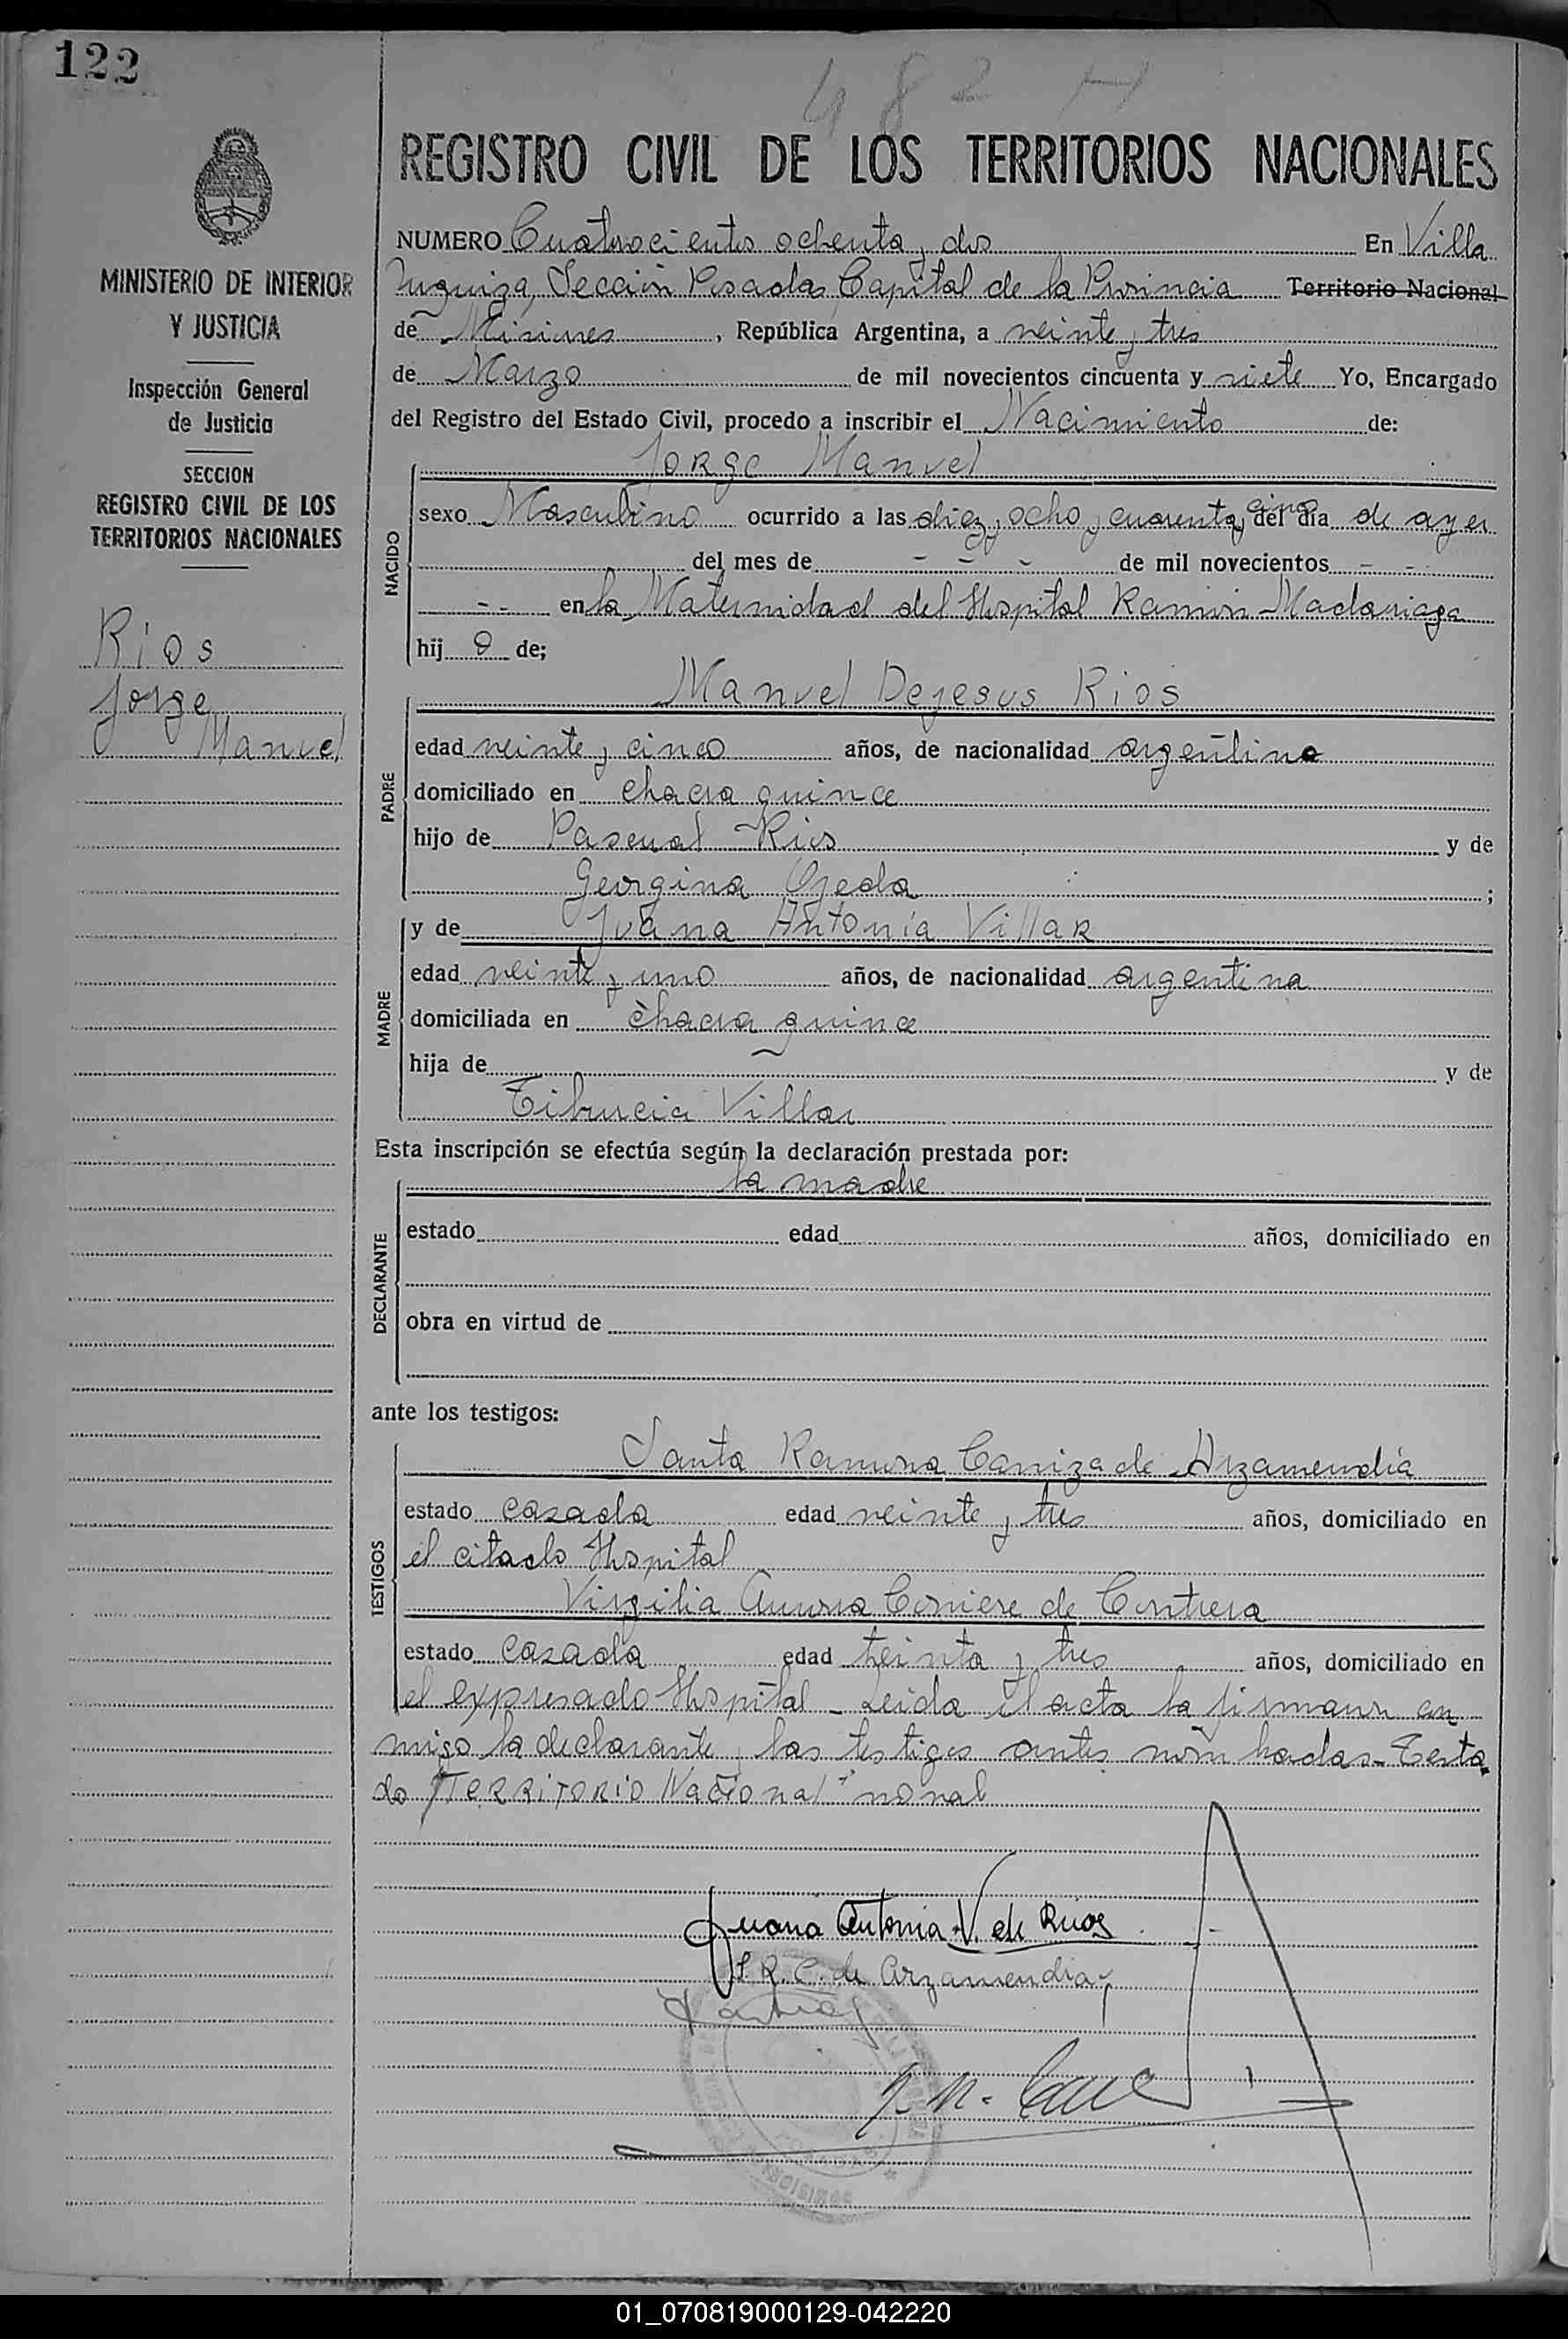 122
482 H
REGISTRO CIVIL DE LOS TERRITORIOS NACIONALES
MINISTERIO DE INTERIOR
Y JUSTICIA
Inspección General
de Justicia
SECCION
REGISTRO CIVIL DE LOS
TERRITORIOS NACIONALES
Rios
Jorge
Manuel
NUMERO Cuatrocientos ochenta y dos En Villa
Urquiza, Sección Posadas Capital de la Provincia Territorio Nacional
de Misiones, República Argentina, a veinte y tres
de Marzo de mil novecientos cincuenta y siete Yo, Encargado
del Registro del Estado Civil, procedo a inscribir el Nacimiento de:
NACIDO
Jorge Manuel
sexo Masculino ocurrido a las diez y ocho y cuarenta y cinco del día de ayer
del mes de - - - de mil novecientos - -
- - en la Maternidad del Hospital Ramón Madariaga
hij o de;
PADRE
Manuel Dejesus Rios
edad veinte y cinco años, de nacionalidad argentino
domiciliado en chacra quince
hijo de Pascual Rios y de
Georgina Ojeda ;
MADRE
y de Juana Antonia Villar
edad veinte y uno años, de nacionalidad argentina
domiciliada en chacra quince
hija de y de
Tiburcia Villar
Esta inscripción se efectúa según la declaración prestada por:
DECLARANTE
la madre
estado edad años, domiciliado en
obra en virtud de
ante los testigos:
TESTIGOS
Santa Ramona Caniza de Arzamendia
estado casada edad veinte y tres años, domiciliado en
el citado Hospital
Virgilia Aurora de Contrera
estado casada edad treinta y tres años, domiciliado en
el expresado Hospital - Leida el acta la firmaron con
migo la declarante y las testigos antes nombradas - Testa
do "Territorio Nacional" no val
Juana Antonia V. de Rios
S. R. C. de Arzamendia
01_070819000129-042220